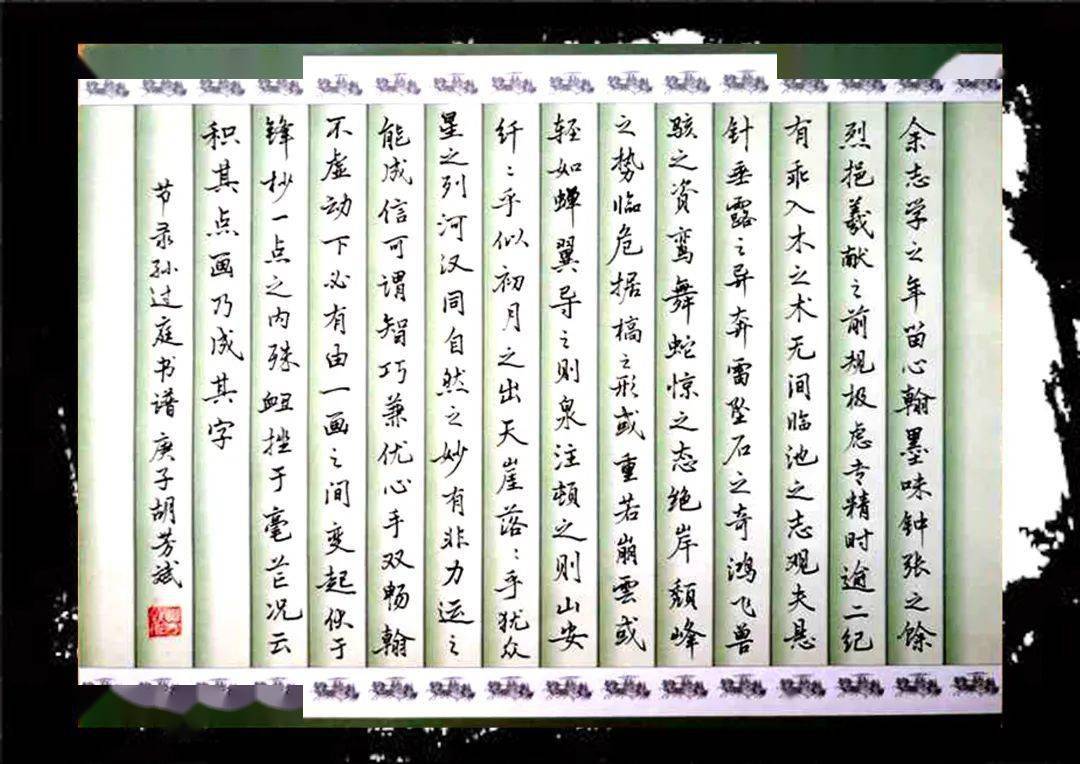 余志学之年留心翰墨味钟张之馀
烈挹羲献之前规极虑专精时逾二纪
有乖入木之术无间临池之志观夫悬
针垂露之异奔雷坠石之奇鸿飞兽
骇之资鸾舞蛇惊之态绝岸颓峰
之势临危据槁之形或重若崩雲或
轻如蝉翼导之则泉注顿之则山安
纤〻乎似初月之出天崖落〻乎犹众
星之列河汉同自然之妙有非力运之
能成信可谓智巧兼优心手双畅翰
不虚动下必有由一画之间变起伏于
锋杪一点之内殊衄挫于毫芒况云
积其点画乃成其字
节录孙过庭书谱庚子胡芳斌